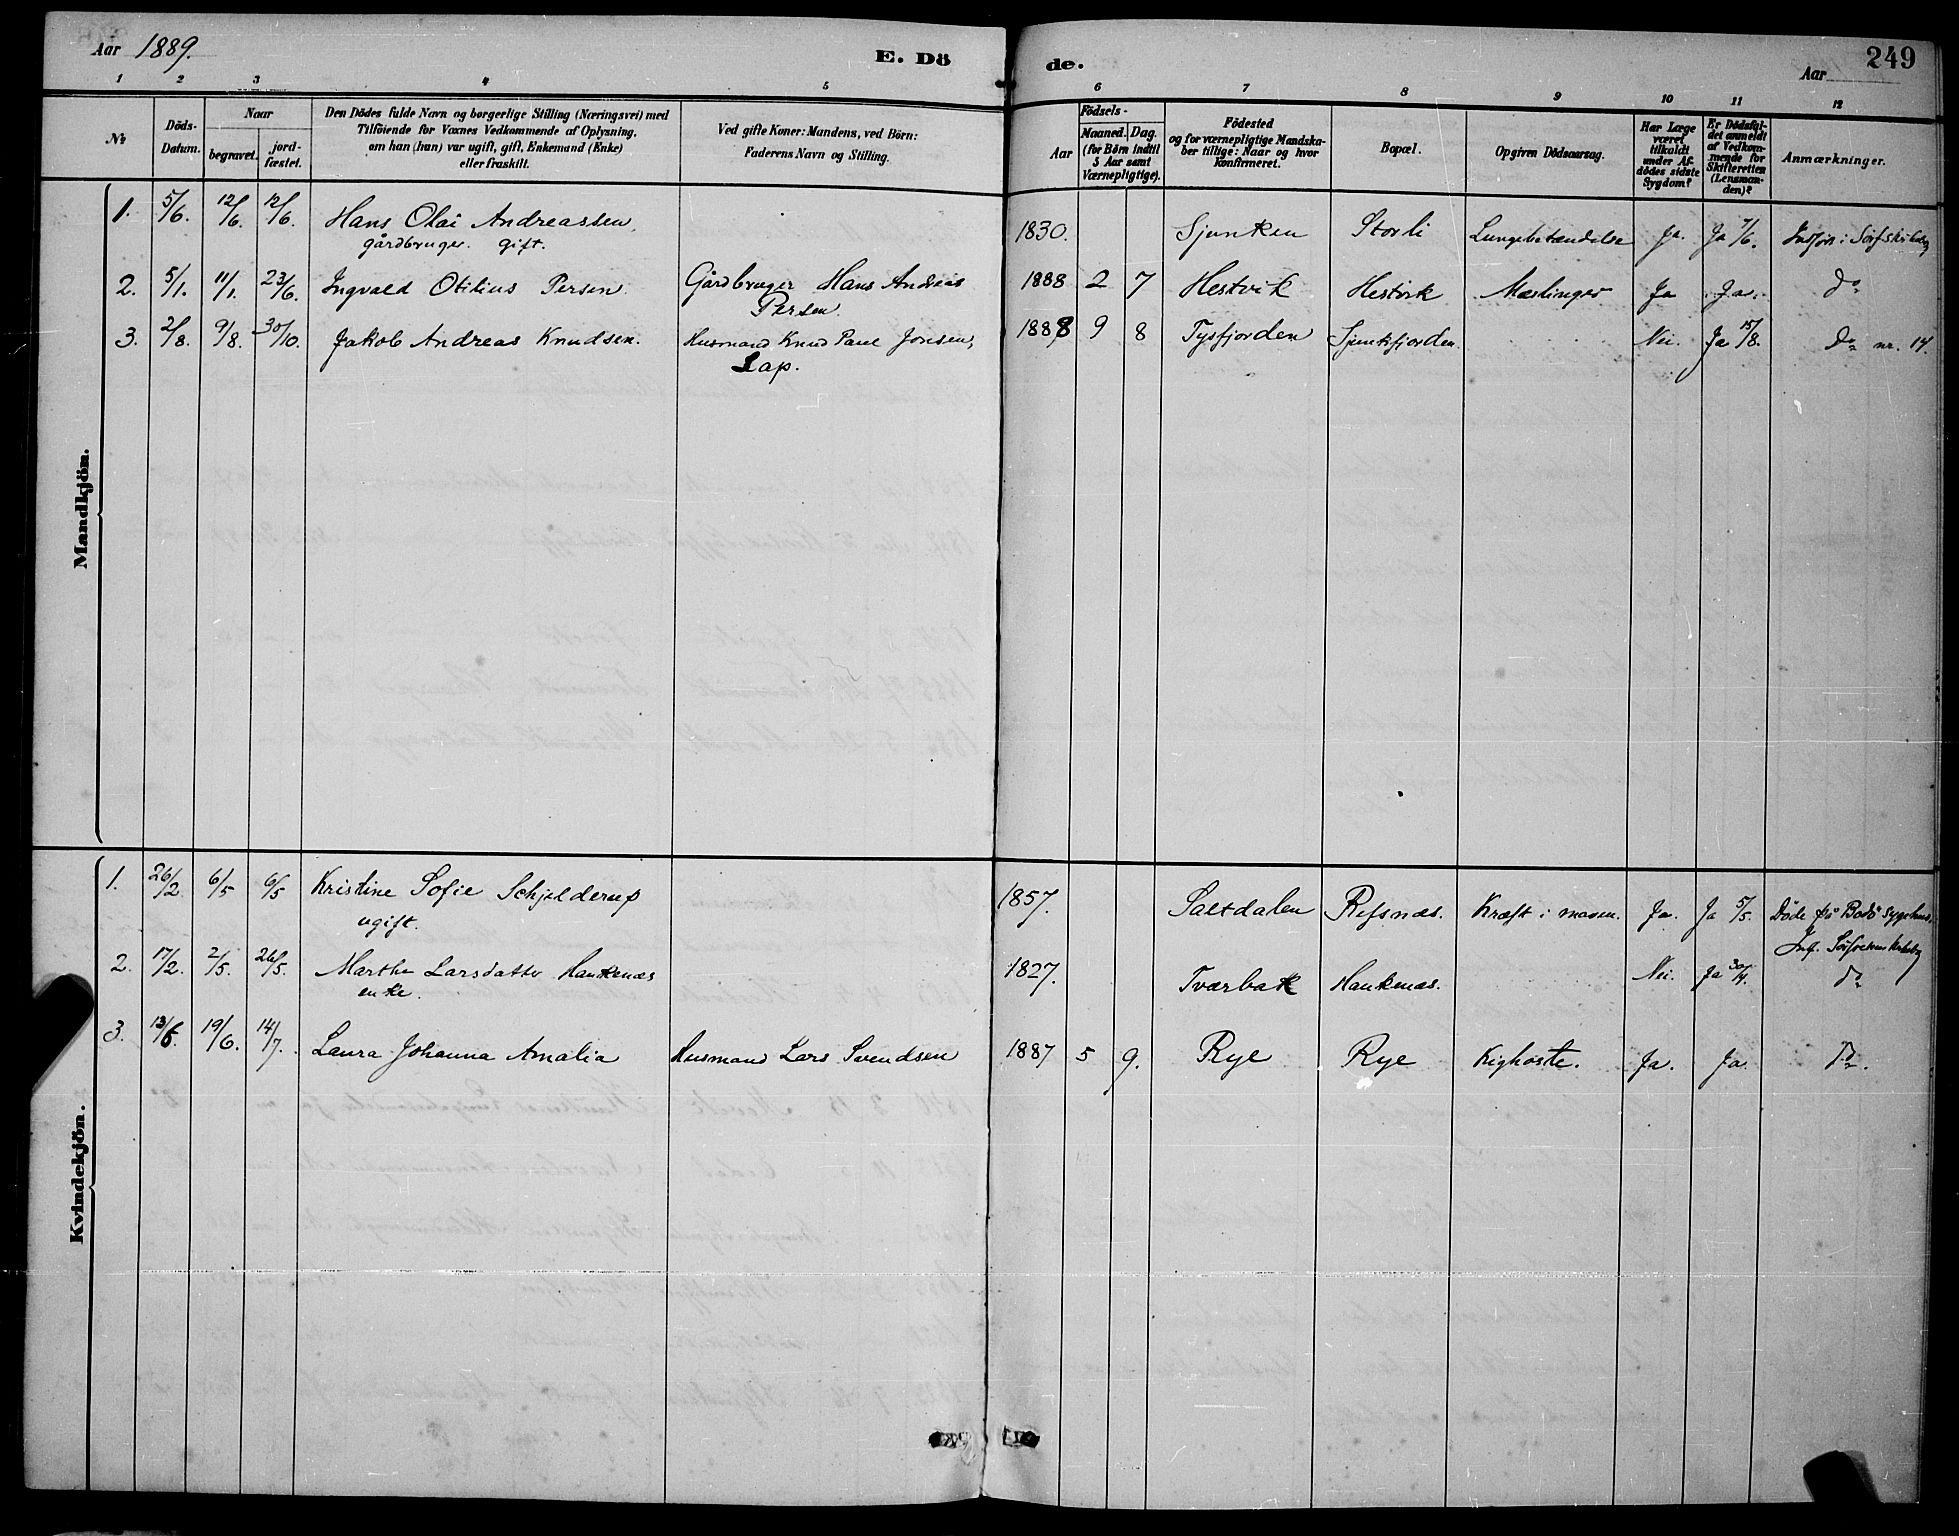 Aar 1889. E. Dö de. Aar 249
1 2 3 4 5 6 7 8 9 10 11 12
№ Döds-Datum. Naar begravet. jord-fæstet. Den Dödes fulde Navn og borgerlige Stilling (Næringsvei) med Tilföiende for Voxnes Vedkommende af Oplysning, om han (hun) var ugift, gift, Enkemand (Enke) eller fraskilt. Ved gifte Koner: Mandens, ved Börn: Faderens Navn og Stilling. Aar Födsels- Maaned. Dag. (for Börn indtil 5 Aar samt Værnepligtige). Födested og for værnepligtige Mandskaber tillige: Naar og hvor konfirmeret. Bopæl. Opgiven Dödsaarsag. Har Læge været tilkaldt under Afdödes sidste Sygdom? Er Dödsfaldet anmeldt af Vedkommende for Skifteretten (Lensmanden)? Anmærkninger.
Mandkjön.
1. 5/6. 12/6. 12/6. Hans Olai Andreassen, 1830. Sjunken Storli Lungebetændelse Ja. Ja 7/6.
gårdbruger. gift.
2. 5/1. 11/1. 23/6. Ingvald Otilius Persen. Gårdbruger Hans Andreas 1888 2 7 Hestvik Hestvik Mæslinger Ja Ja. do
Persen.
3. 2/8. 9/8. 30/10. Jakob Andreas Knudsen. Husmand Knud Paul Jonsen, 1888 9 8 Tysfjorden Sjunkfjorden. Nei. Ja 15/8. do nr. 14.
Lap.
Kvindekjön.
1. 26/2. 6/5 6/5 Kristine Sofie Schjelderup 1857. Saltdalen Refsnæs. Kræft i maven. Ja. Ja 5/5. Döde på Bodö sygehus.
ugift.
2. 17/2. 2/5. 26/5. Marthe Larsdatter Hankenæs 1827. Tværbak Hankenæs. Nei. Ja 30/4. do
enke.
3. 13/6. 19/6. 14/7. Laura Johanna Amalia Husmand Lars Svendsen 1887 5 9. Rye Rye Kighoste. Ja. Ja. do.